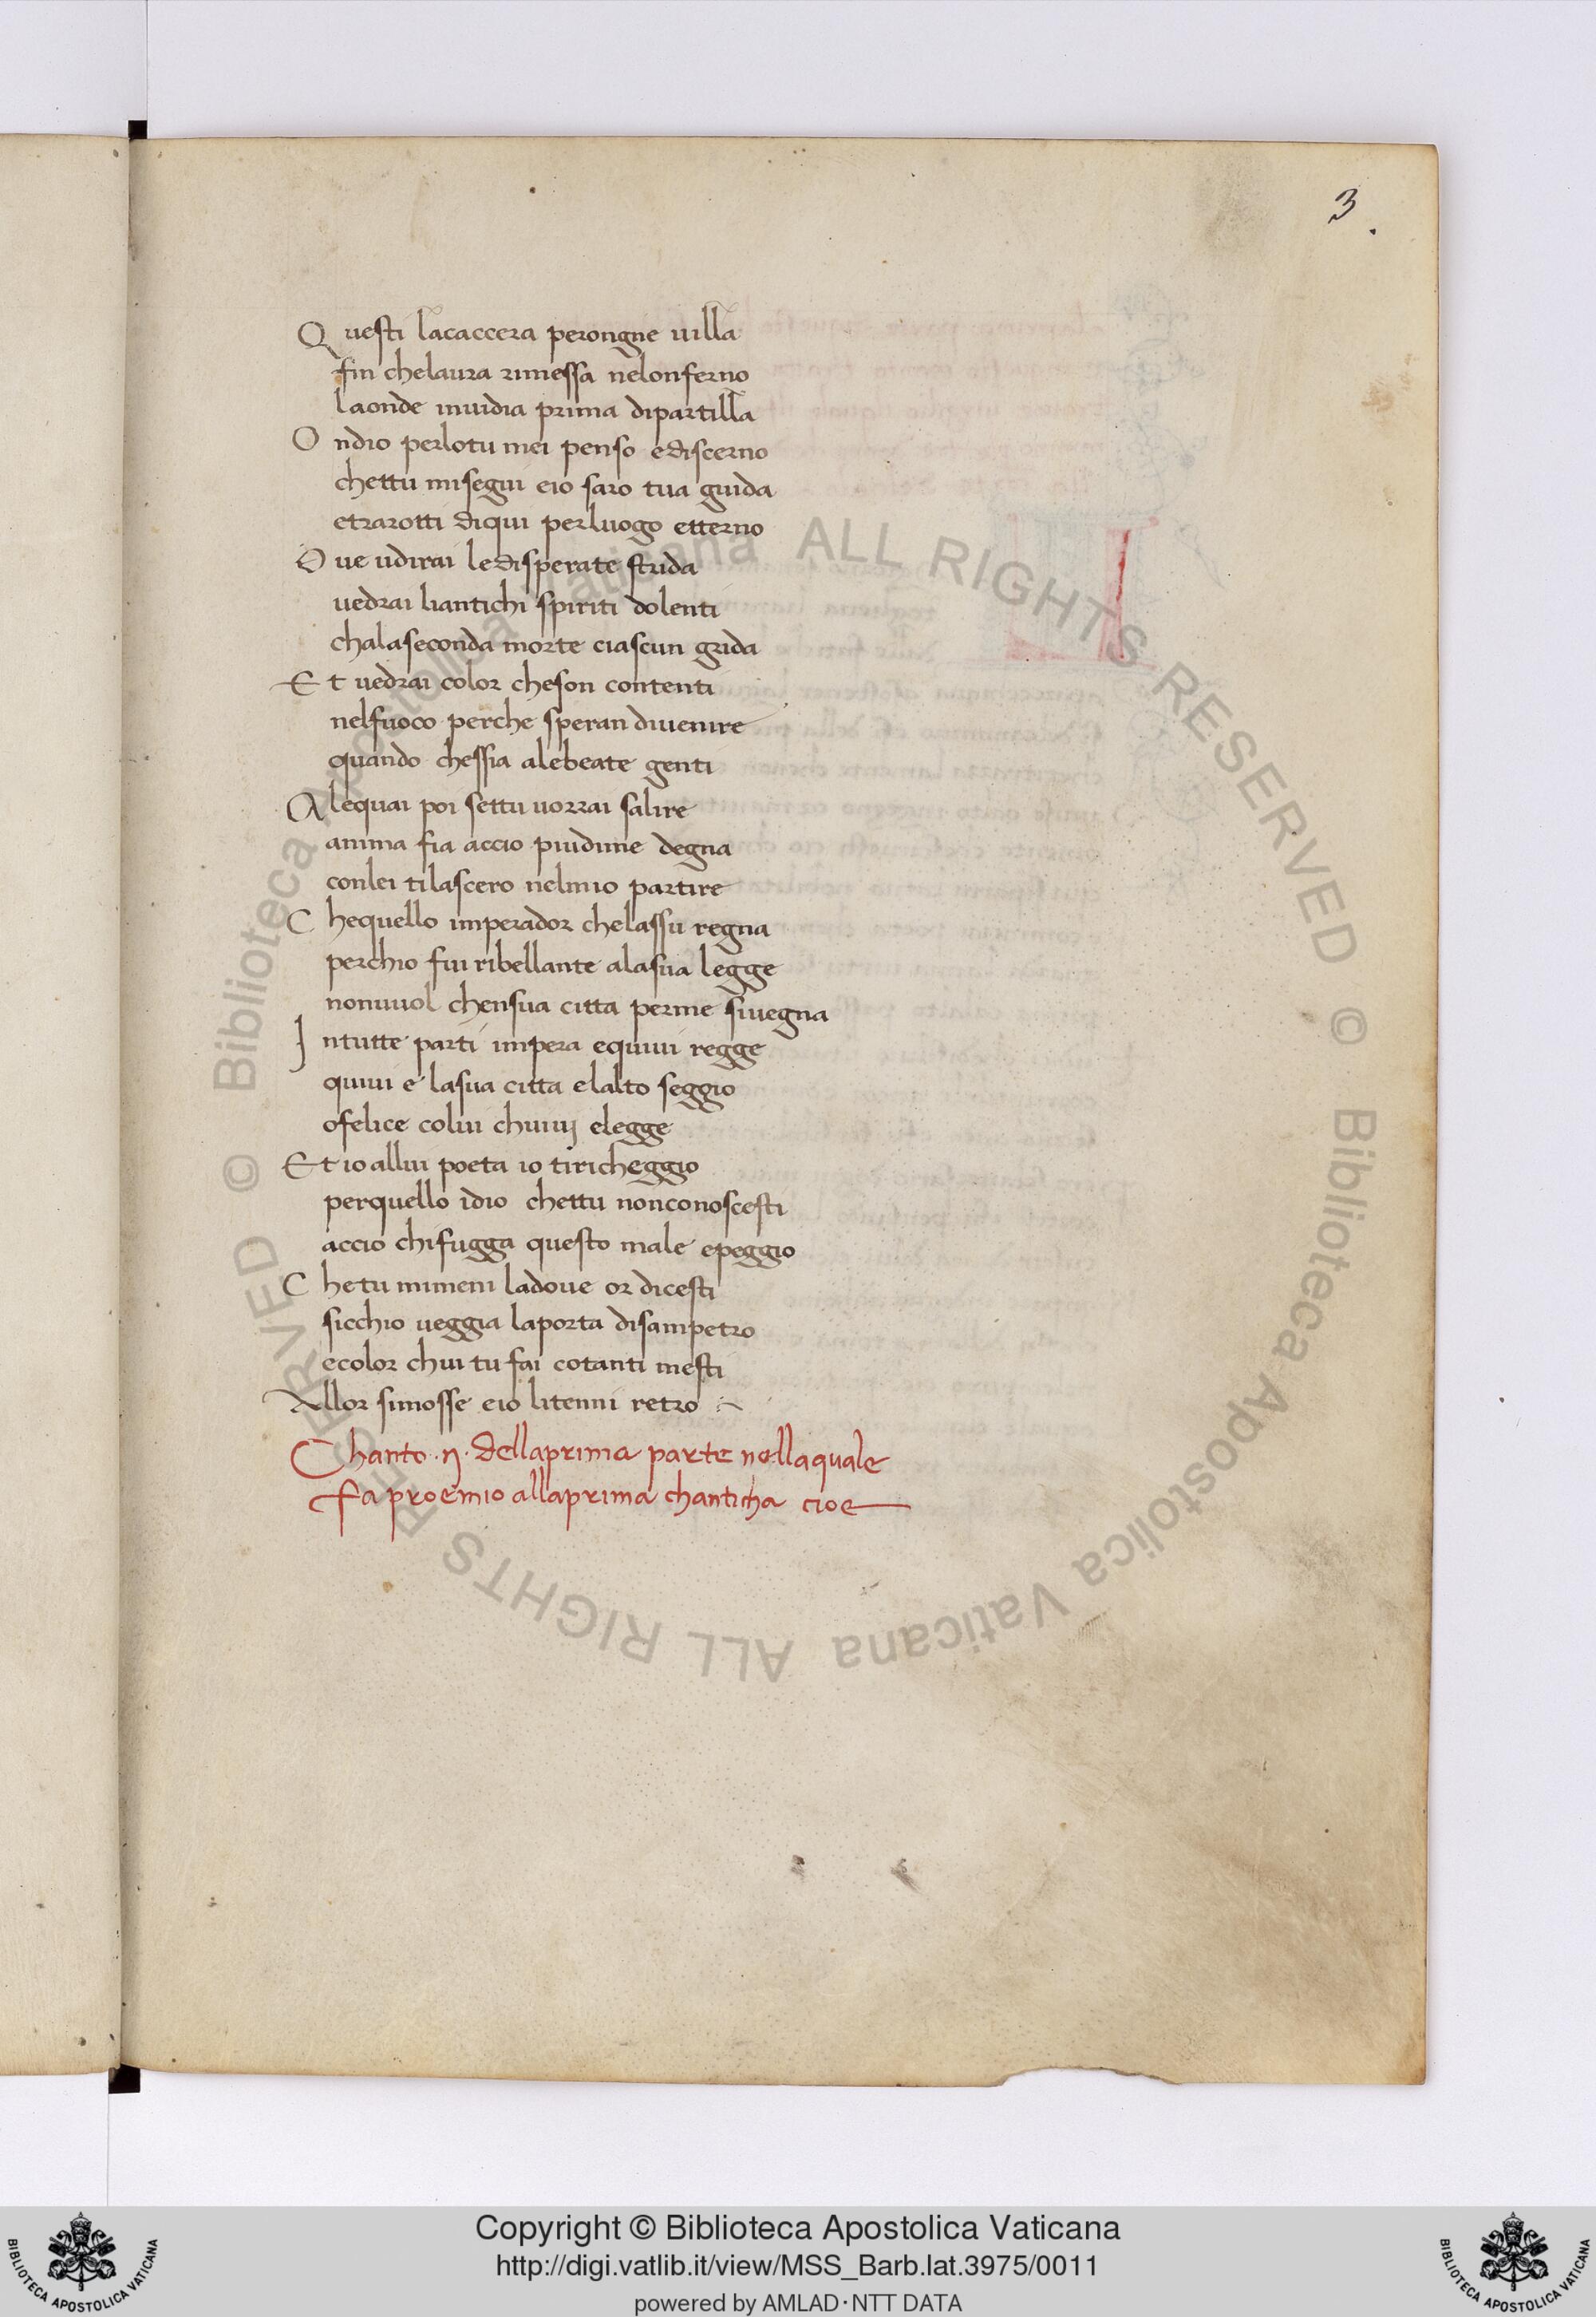 3
Questi lacaccera perongne uilla
fin chelaura rimessa nelonferno
laonde inuidia prima dipartilla
Ondio perlotu mei penso ediscerno
chettu misegui eio saro tua guida
etrarotti diqui perluogo etterno
Oue udirai ledisperate strida
uedrai liantichi spiriti dolenti
chalaseconda morte ciascun grida
Et uedrai color cheson contenti
nelfuoco perche speran diuenire
quando chessia alebeate genti
Alequai poi settu uorrai salire
anima fia accio piudime degna
conlei tilascero nelmio partire
Chequello imperador chelassu regna
perchio fui ribellante alasua legge
nonuuol chensua citta perme siuegna
Intutte parti impera equiui regge
quiui e lasua citta elalto seggio
ofelice colui chuiuj elegge
Et io allui poeta io tiricheggio
perquello idio chettu nonconoscesti
accio chifugga questo male epeggio
Chetu mimeni ladoue or dicesti
sicchio ueggia laporta disampetro
ecolor chui tu fai cotanti mesti
Allor simosse eio litenni retro
Chanto .ij. dellaprima parte nellaquale
fa proemio allaprima chanticha cioe
© Biblioteca Apostolica Vaticana ALL RIGHTS RESERVED © Biblioteca Apostolica Vaticana ALL RIGHTS RESERVED
Copyright © Biblioteca Apostolica Vaticana
http://digi.vatlib.it/view/MSS_Barb.lat.3975/0011
powered by AMLAD·NTT DATA
BIBLIOTECA APOSTOLICA VATICANA
BIBLIOTECA APOSTOLICA VATICANA